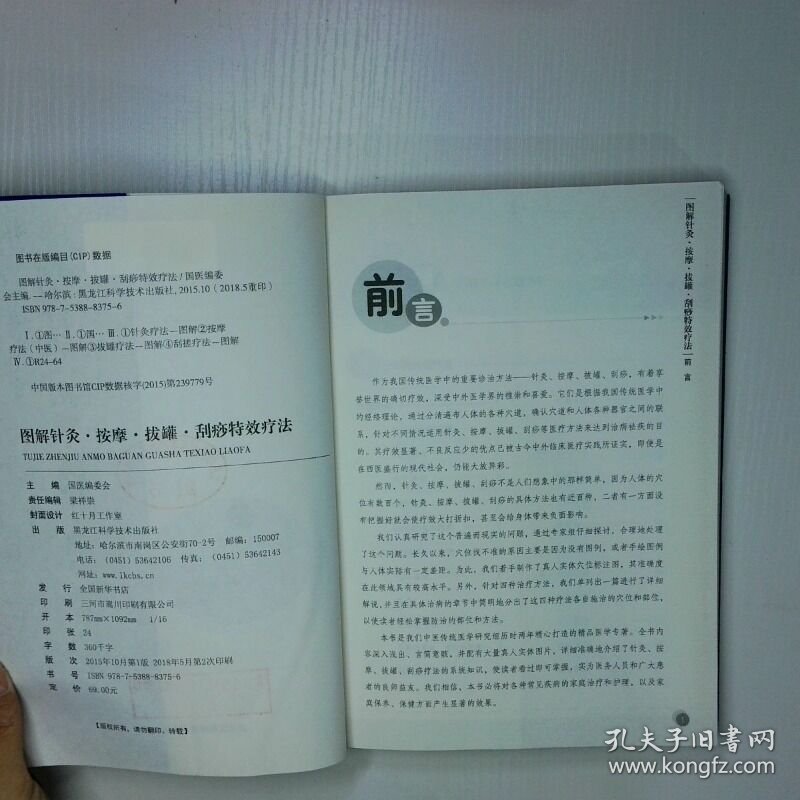 图书在版编目(CIP)数据
图解针灸·按摩·拔罐·刮痧特效疗法/国医编委
会主编.--哈尔滨:黑龙江科学技术出版社,2015.10(2018.5重印)
ISBN 978-7-5388-8375-6
Ⅰ.①图…Ⅱ.①国…Ⅲ.①针灸疗法—图解②按摩
疗法(中医)—图解③拔罐疗法—图解④刮搓疗法—图解
Ⅳ.①R24-64
中国版本图书馆CIP数据核字(2015)第239779号
图解针灸·按摩·拔罐·刮痧特效疗法
TUJIE ZHENJIU ANMO BAGUAN GUASHA TEXIAO LIAOFA
主 编 国医编委会
责任编辑 梁祥崇
封面设计 红十月工作室
出 版 黑龙江科学技术出版社
地址:哈尔滨市南岗区公安街70-2号 邮编:150007
电话:(0451)53642106 传真:(0451)53642143
网址:www.lkcbs.cn
发 行 全国新华书店
印 刷 三河市嵩川印刷有限公司
开 本 787mm×1092mm 1/16
印 张 24
字 数 360千字
版 次 2015年10月第1版 2018年5月第2次印刷
书 号 ISBN 978-7-5388-8375-6
定 价 69.00元
【版权所有,请勿翻印、转载】
图解针灸·按摩·拔罐·刮痧特效疗法 前言
前言
作为我国传统医学中的重要诊治方法——针灸、按摩、拔罐、刮痧,有着享
誉世界的确切疗效,深受中外医学界的推崇和喜爱。它们是根据我国传统医学中
的经络理论,通过分清遍布人体的各种穴道,确认穴道和人体各种器官之间的联
系,针对不同情况运用针灸、按摩、拔罐、刮痧等医疗方法来达到治病祛疾的目
的。其疗效显著、不良反应少的优点已被古今中外临床医疗实践所证实,即便是
在西医盛行的现代社会,仍能大放异彩。
然而,针灸、按摩、拔罐、刮痧不是人们想象中的那样简单,因为人体的穴
位有数百个,针灸、按摩、拔罐、刮痧的具体方法也有近百种,二者有一方面没
有把握好就会使疗效大打折扣,甚至会给身体带来负面影响。
我们认真研究了这个普遍而现实的问题,通过专家组仔细探讨,合理地处理
了这个问题。长久以来,穴位找不准的原因主要是因为没有图例,或者手绘图例
与人体实际有一定差距。为此,我们着手制作了真人实体穴位标注图,其准确度
在此领域具有较高水平。另外,针对四种治疗方法,我们单列出一篇进行了详细
解说,并且在具体治病的章节中简明地分出了这四种疗法各自施治的穴位和部位,
以使读者轻松掌握防治的部位和方法。
本书是我们中医传统医学研究组历时两年精心打造的精品医学专著。全书内
容深入浅出、言简意赅,并配有大量真人实体图片,详细准确地介绍了针灸、按
摩、拔罐、刮痧疗法的系统知识,使读者看过即可掌握,实为医务人员和广大患
者的良师益友。我们相信,本书必将对各种常见疾病的家庭治疗和护理,以及家
庭保养、保健方面产生显著的效果。
1
孔夫子旧书网
www.kongfz.com